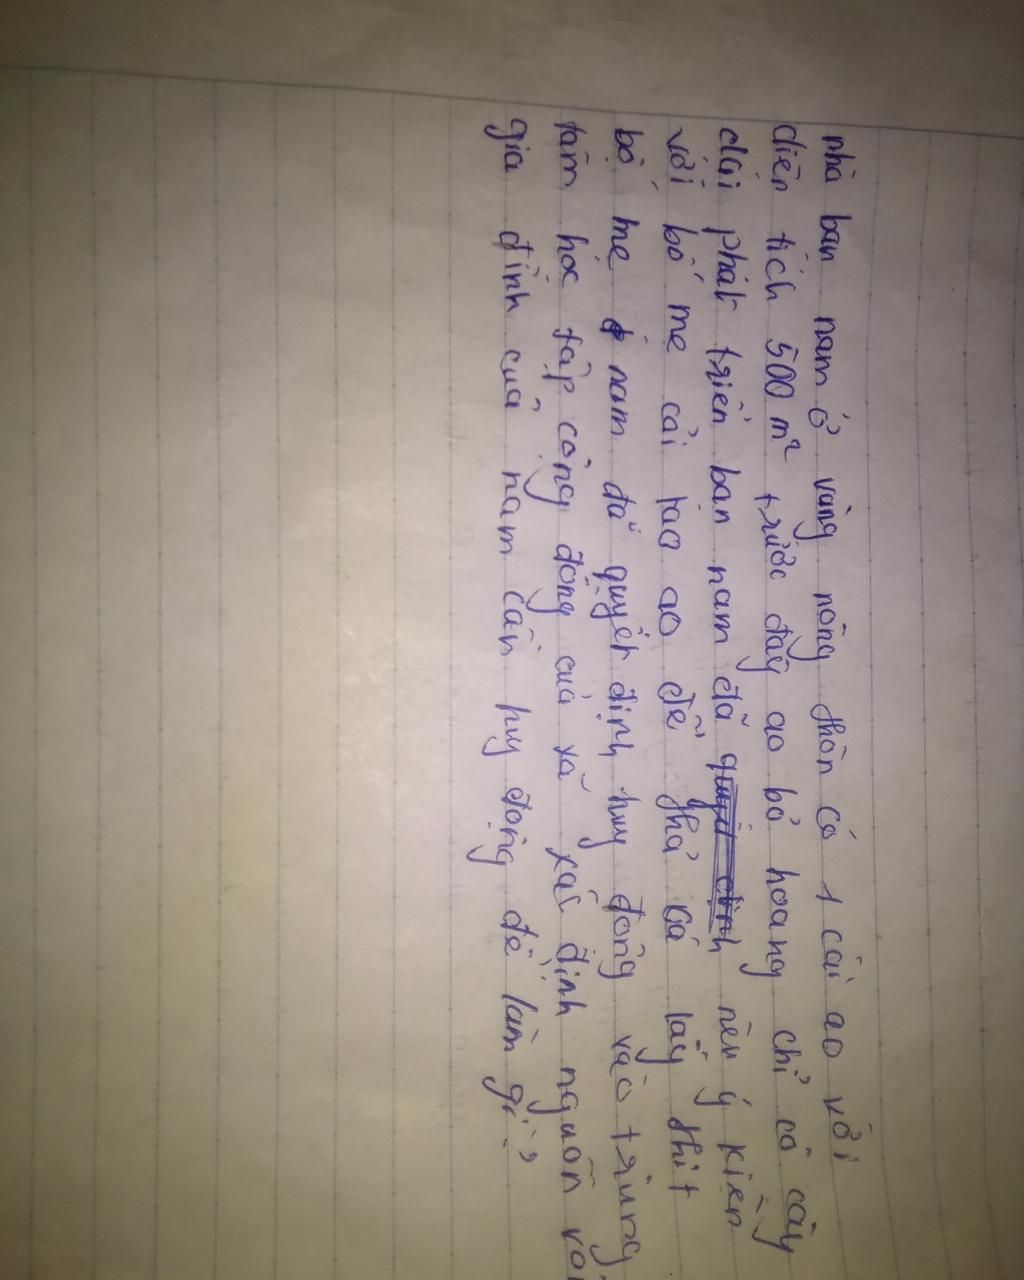 nhà bạn nam ở vùng nông thôn có 1 cái ao với
diện tích 500 m² trước đây ao bỏ hoang chỉ có cây
dại phát triển bạn nam đã quyết định nêu ý kiến
với bố mẹ cải tạo ao để thả cá lấy thịt
bố mẹ nam đã quyết định huy động vào trung
tâm học tập cộng đồng của xã xác định nguồn
gia đình của nam cần huy động để làm gì?